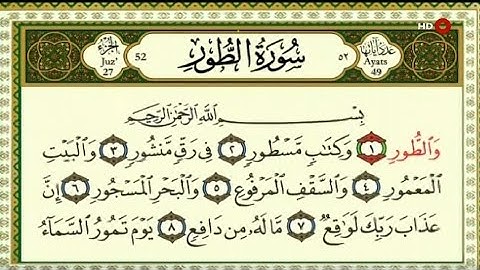 HD
الجزء
Juz'
27
52
سورة الطور
٥٢
عدد آياتها
Ayats
49
بِسْمِ اللَّهِ الرَّحْمَٰنِ الرَّحِيمِ
وَالطُّورِ ١ وَكِتَابٍ مَّسْطُورٍ ٢ فِي رَقٍّ مَّنشُورٍ ٣ وَالْبَيْتِ
الْمَعْمُورِ ٤ وَالسَّقْفِ الْمَرْفُوعِ ٥ وَالْبَحْرِ الْمَسْجُورِ ٦ إِنَّ
عَذَابَ رَبِّكَ لَوَاقِعٌ ٧ مَّا لَهُ مِن دَافِعٍ ٨ يَوْمَ تَمُورُ السَّمَاءُ